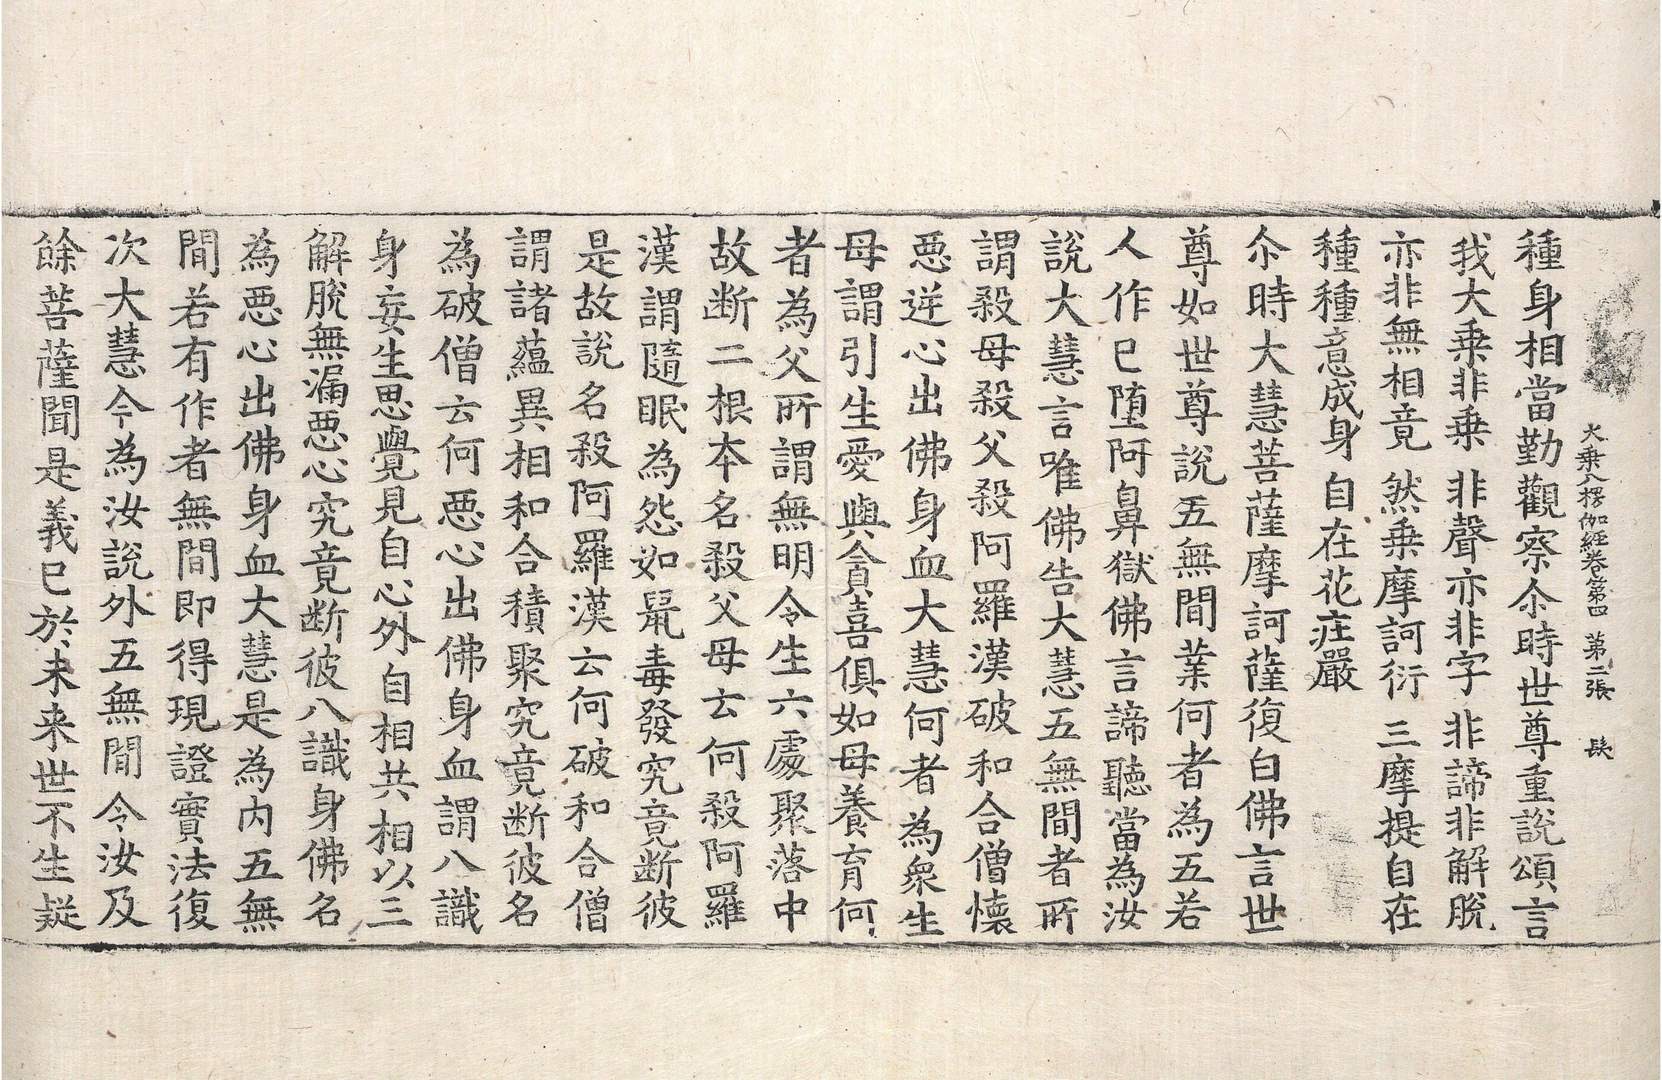 大乗入楞伽経巻第四　第二張　髮
種身相當勤觀察尒時世尊重說頌言
我大乗非乗　非聲亦非字　非諦非解脫
亦非無相竟　然乗摩訶衍　三摩提自在
種種意成身　自在花庄嚴
尒時大慧菩薩摩訶薩復白佛言世
尊如世尊說五無間業何者為五若
人作已堕阿鼻獄佛言諦聽當為汝
說大慧言唯佛告大慧五無間者所
謂殺母殺父殺阿羅漢破和合僧懷
惡逆心出佛身血大慧何者為衆生
母謂引生愛與貪喜俱如母養育何
者為父所謂無明令生六處聚落中
故断二根本名殺父母云何殺阿羅
漢謂隨眠為怨如鼠毒發究竟断彼
是故說名殺阿羅漢云何破和合僧
謂諸蘊異相和合積聚究竟断彼名
為破僧云何惡心出佛身血謂八識
身妄生思覺見自心外自相共相以三
解脫無漏惡心究竟断彼八識身佛名
為惡心出佛身血大慧是為内五無
間若有作者無間即得現證實法復
次大慧今為汝說外五無間令汝及
餘菩薩聞是義已於未来世不生疑